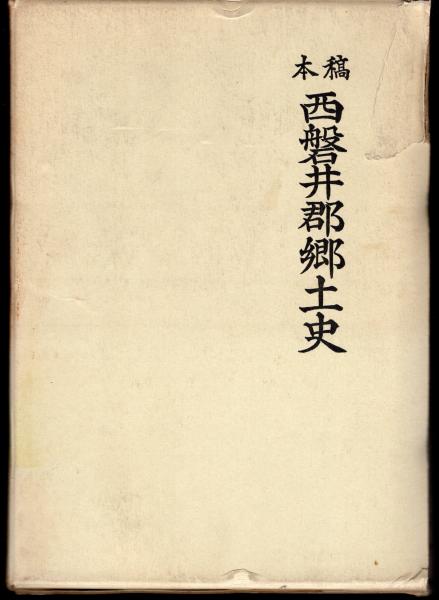 稿本
西磐井郡郷土史